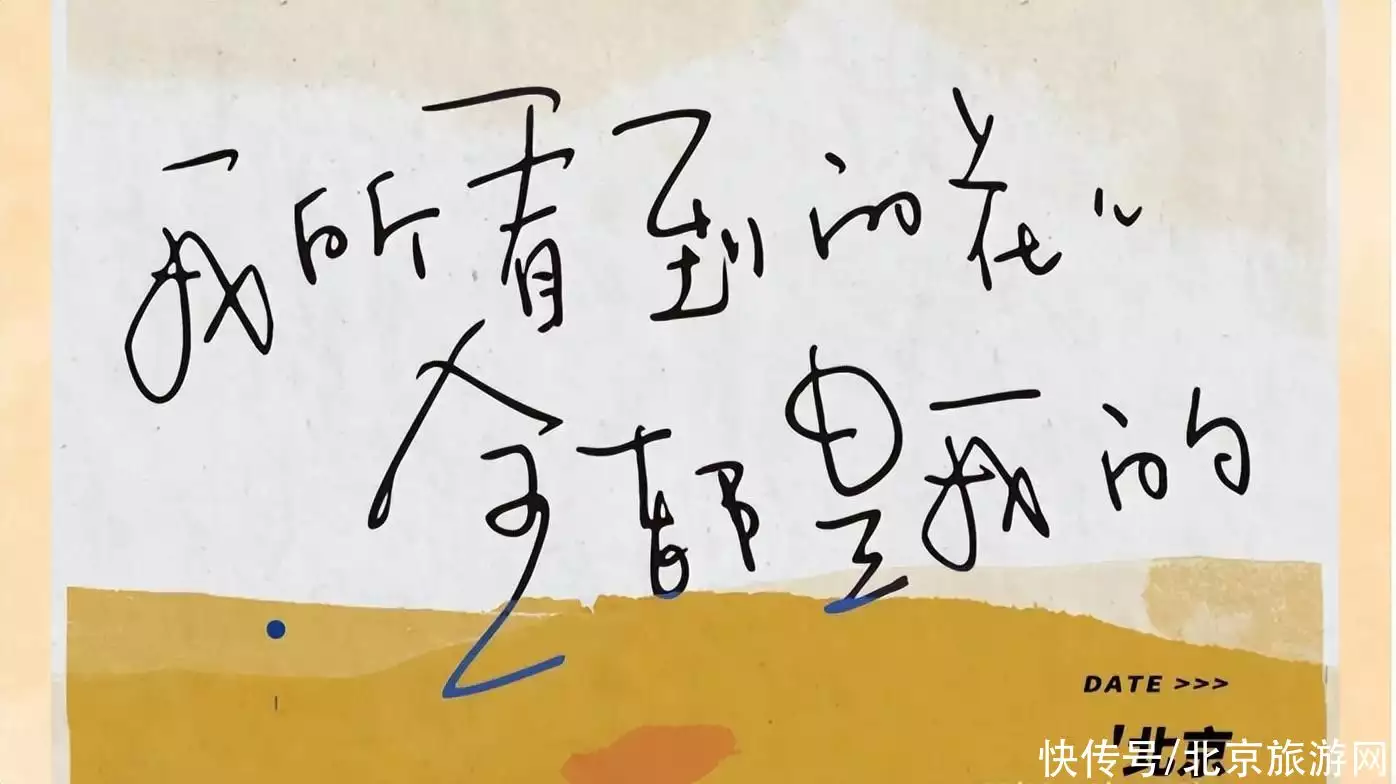 我所看到的花
全都是我的
DATE >>>
北京
快传号/北京旅游网